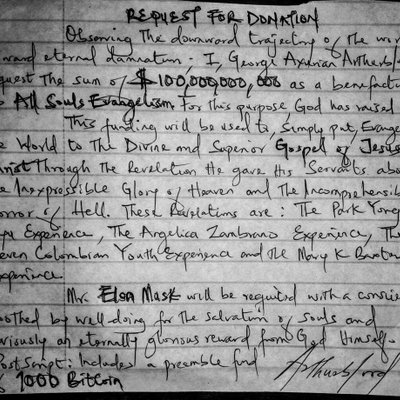 REQUEST FOR DONATION
Observing the downward trajectory of the wor
ward eternal damnation. I, George Axunian Arthurbfor
quest the sum of $100,000,000,000 as a benefactu
All Souls Evangelism. For this purpose God has raised
This funding will be used to, simply put, Evange
e World to the Divine and Superior Gospel of Jesus
hrist Through the Revelation He gave His Servants abo
e Inexpressible Glory of Heaven and The Incomprehensib
orror of Hell. These Revelations are: The Park Yong
yu Experience, The Angelica Zambrano Experience, The
even Colombian Youth Experience and the Mary K Baxter
xperience
Mr. Elon Musk will be required with a conscien
oothed by well-doing for the salvation of souls and
riously an eternally glorious reward from God Himself.
Postscript: Includes a preamble fund
1000 Bitcoin